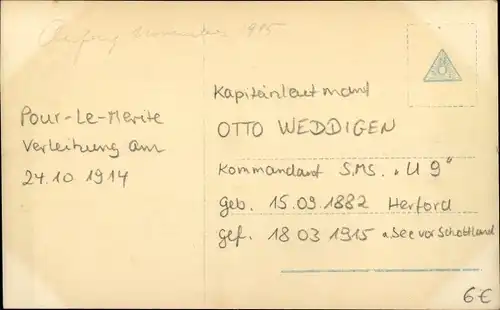 Anfang November 1915
Pour-Le-Merite
Verleihung am
24.10 1914
Kapitänleutnant
OTTO WEDDIGEN
Kommandant S.M.S. „U 9"
Geb. 15.09.1882 Herford
gef. 18 03 1915 a. See vor Schottland
6€